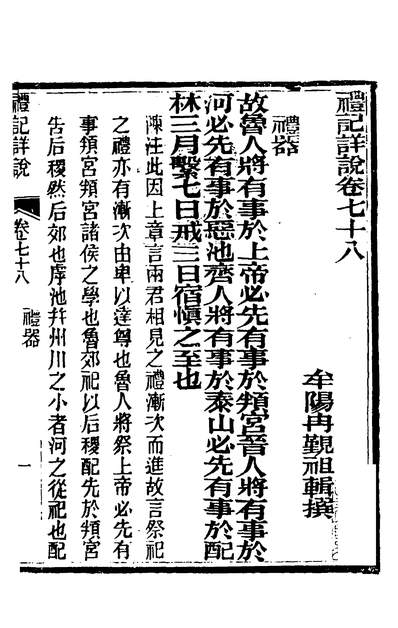 禮記詳說卷七十八
牟陽冉覲祖輯撰
禮器
故魯人將有事於上帝必先有事於頖宮晉人將有事於
河必先有事於惡池齊人將有事於泰山必先有事於配
林三月繫七日戒三日宿愼之至也
陳注此因上章言兩君相見之禮漸次而進故言祭祀
之禮亦有漸次由卑以達尊也魯人將祭上帝必先有
事頖宮頖宮諸侯之學也魯郊祀以后稷配先於頖宮
告后稷然后郊也虖池幷州川之小者河之從祀也配
禮記詳說
卷七十八
禮器
一